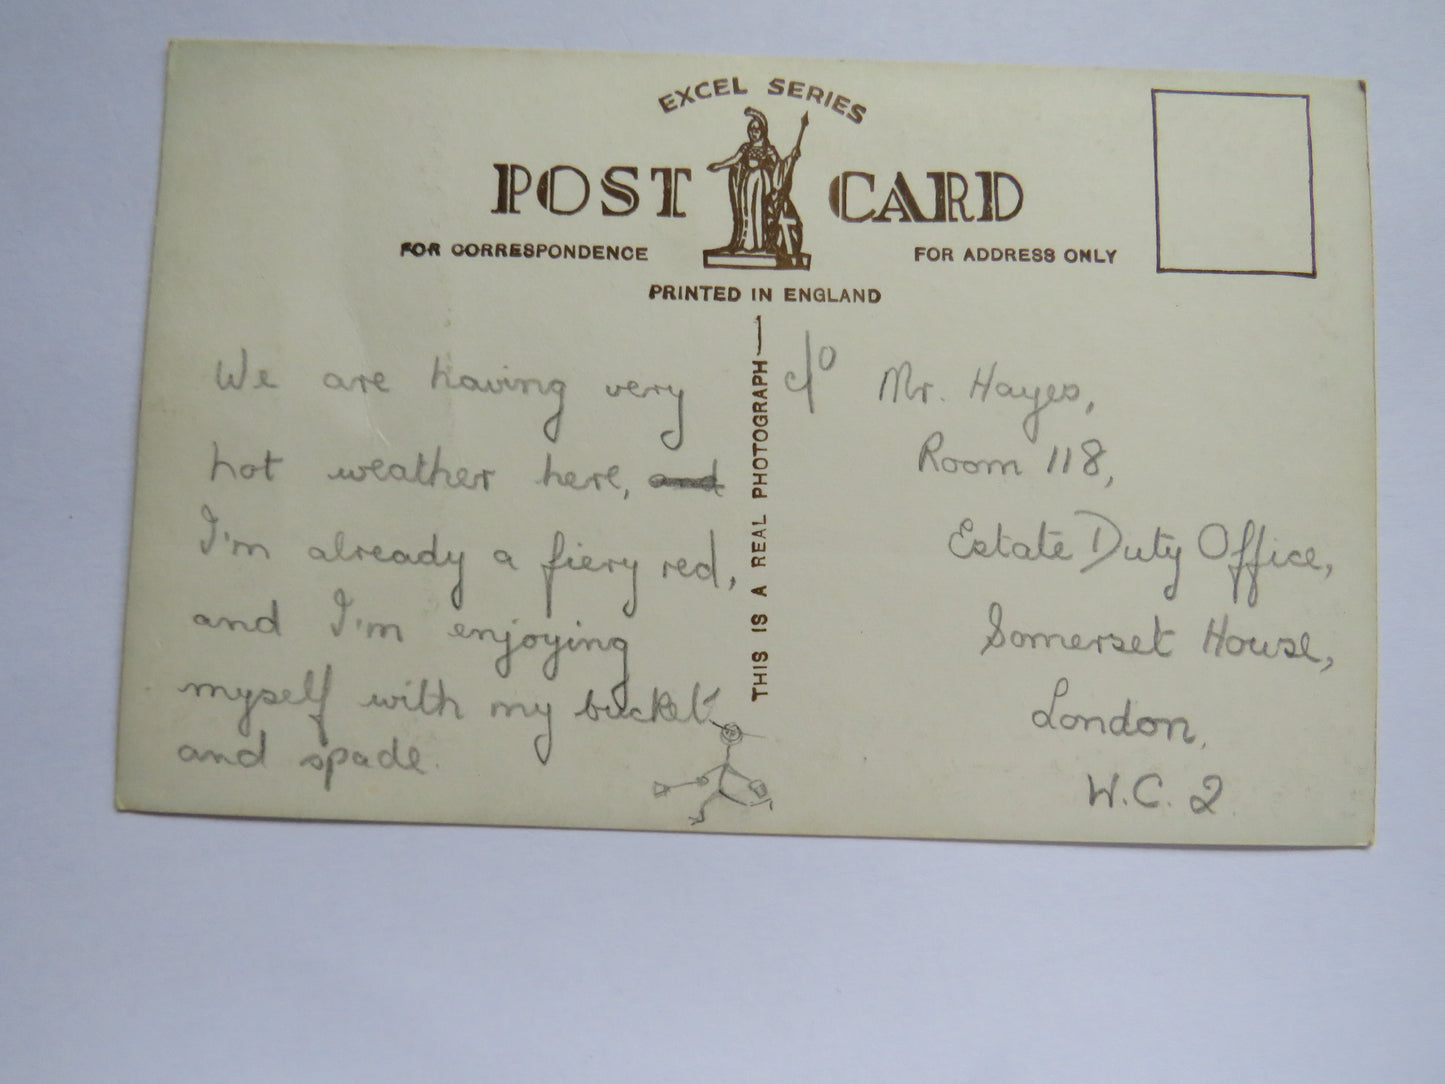 EXCEL SERIES
POST CARD
FOR CORRESPONDENCE
FOR ADDRESS ONLY
PRINTED IN ENGLAND
THIS IS A REAL PHOTOGRAPH
We are having very
hot weather here, and
I'm already a fiery red,
and I'm enjoying
myself with my bucket
and spade.
c/o Mr. Hayes,
Room 118,
Estate Duty Office,
Somerset House,
London,
W.C. 2